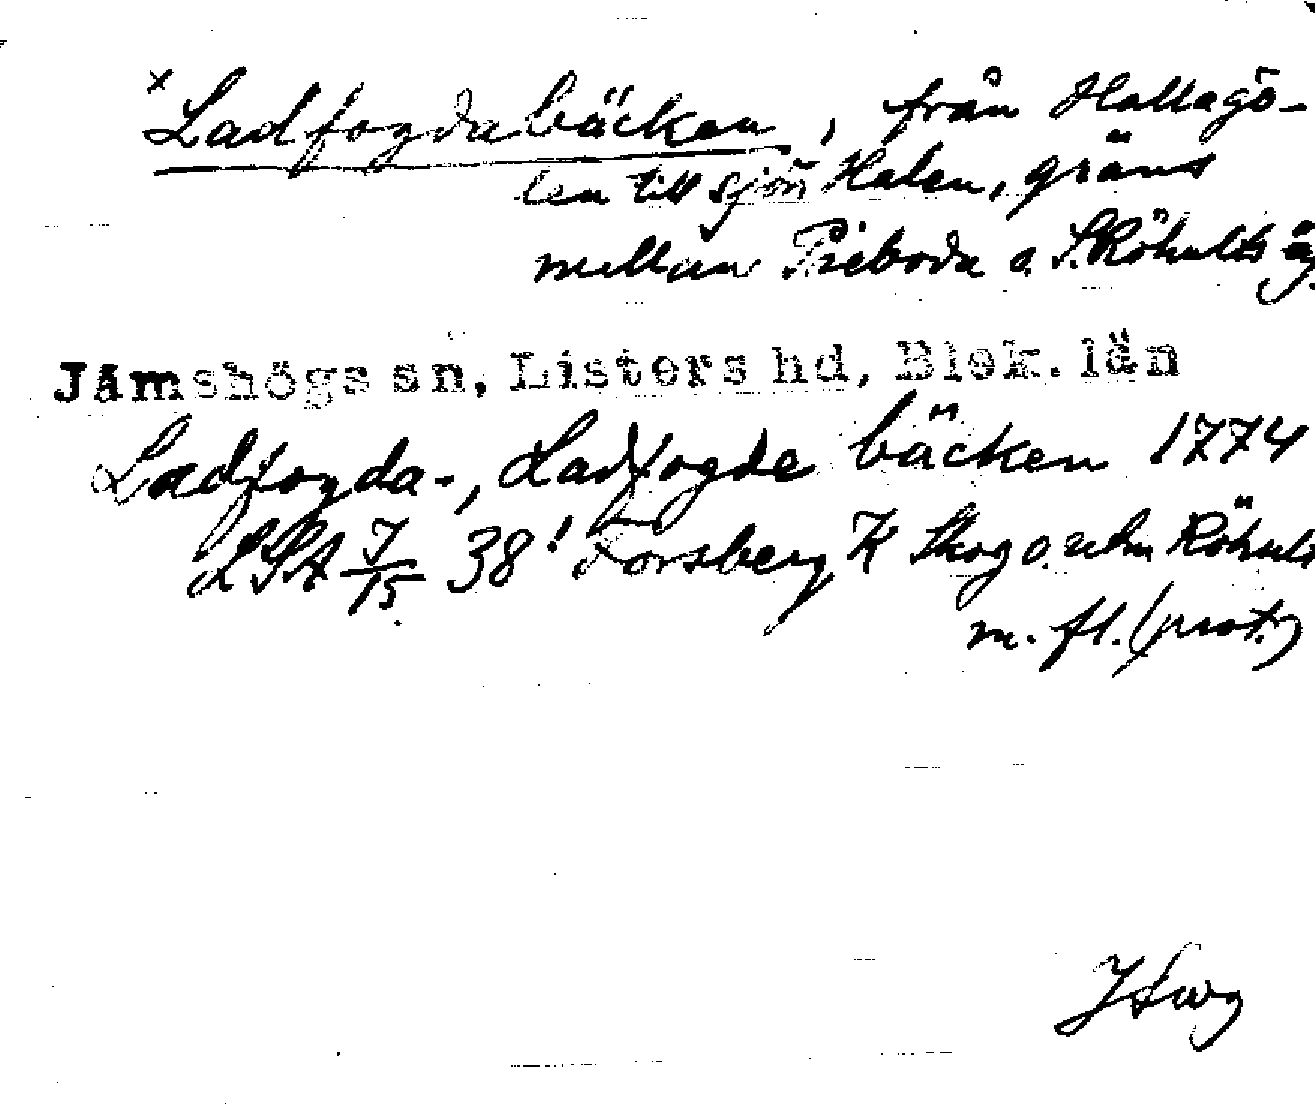 x Ladfogdabäcken, från Hallagö-
len till sjön Halen, gräns
mellan Priboda o. S. Röhults äg.
Jämshögs sn, Listers hd, Blek. län
Ladfogda-, Ladfogde bäcken 1774
LSA 7/15 38! Forsberg K Skog o. utm Röhult
m. fl. (prot.)